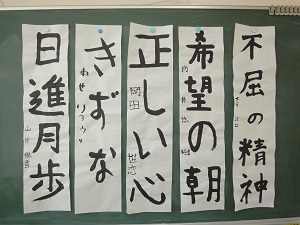 不屈の精神
希望の朝
正しい心
岡田
世恋
きずな
日進月歩